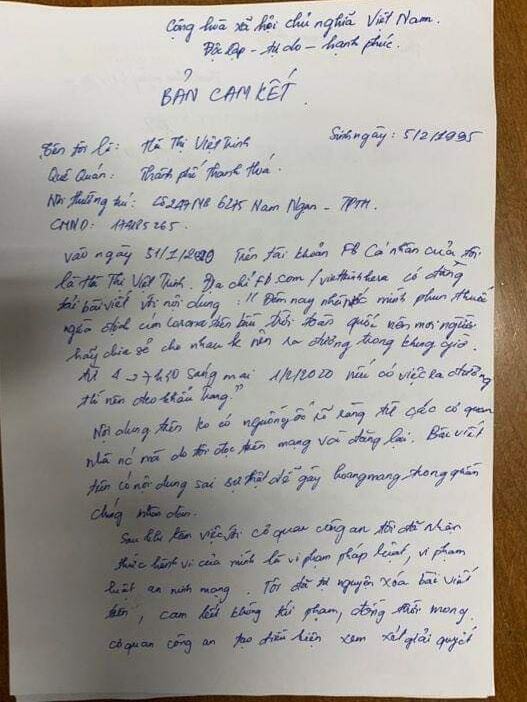 Cộng hòa xã hội chủ nghĩa Việt Nam.
Độc lập - tự do - hạnh phúc.
BẢN CAM KẾT.
Tên tôi là: Hà Thị Việt Trinh Sinh ngày: 5/2/1995
Quê Quán: Thành phố Thanh Hoá.
Nơi thường trú: Lô 247 MB 6275 Nam Ngạn - TPTH.
CMND:
vào ngày 31/1/2020 Trên tài khoản FB Cá nhân của tôi
là Hà Thị Việt Trinh. Địa chỉ fb.com/ có đăng
tải bài viết với nội dung : " Đêm nay nhà nước mình phun thuốc
ngừa dịch cúm corona trên bầu trời toàn quốc nên mọi người
hãy chia sẻ cho nhau k nên ra đường trong khung giờ.
từ 4 -> 7h30 sáng mai 1/2/2020 nếu có việc ra đường
thì nên đeo khẩu trang."
Nội dung trên ko có nguồn gốc rõ ràng từ các cơ quan
nhà nc mà do tôi đọc trên mạng và đăng lại. Bài viết
trên có nội dung sai sự thật dễ gây hoang mang trong quần
chúng nhân dân.
Sau khi làm việc với cơ quan công an tôi đã nhận
thức hành vi của mình là vi phạm pháp luật, vi phạm
luật an ninh mạng. Tôi đã tự nguyện xóa bài viết
trên, cam kết không tái phạm, đồng thời mong
cơ quan công an tạo điều kiện xem xét giải quyết